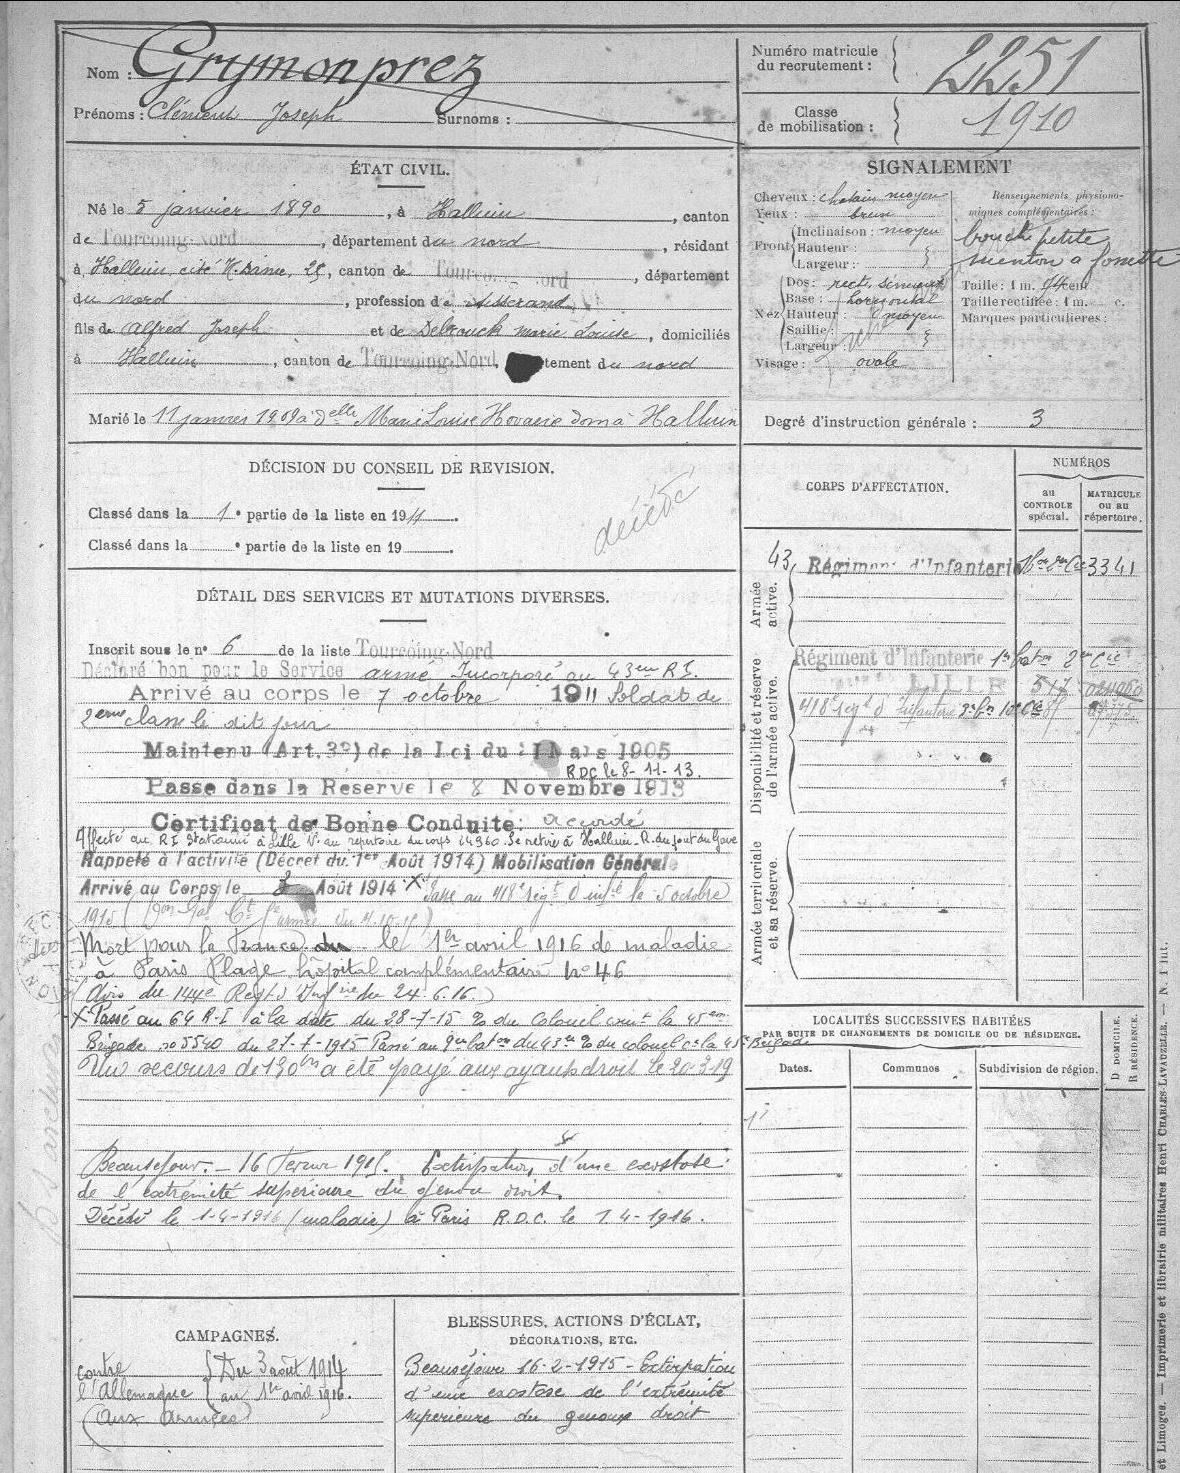 Nom : Grymonprez
Prénoms : Clément Joseph Surnoms :
Numéro matricule du recrutement : 2251
Classe de mobilisation : 1910
ÉTAT CIVIL.
Né le 5 janvier 1890, à Halluin, canton
de Tourcoing-Nord, département du nord, résidant
à Halluin, cité N. Dame, 25, canton de Tourcoing-Nord, département
du nord, profession de tisserand,
fils de alfred Joseph et de Delrouck marie Louise, domiciliés
à Halluin, canton de Tourcoing-Nord, tement du nord
Marié le 11 janvier 1909 à delle Marie Louise Hovaere dom à Halluin
SIGNALEMENT
Cheveux : chatain moyen
Yeux : brun
Front Inclinaison : moyen
Hauteur :
Largeur :
Nez Dos : recti. sinueux
Base : horizontal
Hauteur : moyen
Saillie :
Largeur :
Visage : ovale
Renseignements physionomiques complémentaires :
bouche petite
menton a fossette
Taille : 1 m. cent.
Taille rectifiée : 1 m. c.
Marques particulières :
Degré d'instruction générale : 3
DÉCISION DU CONSEIL DE REVISION.
Classé dans la 1e partie de la liste en 1911.
Classé dans la e partie de la liste en 19 .
décédé
DÉTAIL DES SERVICES ET MUTATIONS DIVERSES.
Inscrit sous le n° 6 de la liste Tourcoing-Nord
Déclaré bon pour le Service armé Incorporé au 43eme R.I.
Arrivé au corps le 7 octobre 1911 Soldat de
2eme classe le dit jour
Maintenu (Art. 33) de la Loi du 21 Mars 1905
RDC le 8-11-13.
Passé dans la Réserve le 8 Novembre 1913
Certificat de Bonne Conduite : accordé
Affecté au R.I. Stationné à Lille N° au répertoire du corps Se retire à Halluin - R. du pont du Gave
Rappelé à l'activité (Décret du 1er Août 1914) Mobilisation Générale
Arrivé au Corps le 3 Août 1914 X Passé au 418e régt d'infie le 5 octobre
1915
Mort pour la France le 1er avril 1916 de maladie
à Paris Plage hôpital complémentaire n° 46
(Avis du 144e Regt d'Infie du 24.6.16.)
X Passé au 64 R-I à la date du 28-7-15 du Colonel la 45em
Brigade n° 5540 du 27-7-1915 Passé au bat on du 43e du colonel ct la 45e Brigade
Un secours de 150 a été payé aux ayants droit le 20-3-19
Beauséjour. - 16 Fevrier 1915. Extirpation d'une exostose
de l'extrémité superieure du genou droit.
Décédé le 1-4-1916 (maladie) à Paris R.D.C. le 1.4-1916.
CORPS D'AFFECTATION.
NUMÉROS
au CONTROLE spécial.
MATRICULE ou au répertoire.
Armée active.
43e Régiment d'Infanterie 3341
Disponibilité et réserve de l'armée active.
Régiment d'Infanterie 1er bat on 2em Cie
LILLE 517
418e régt d'Infanterie
Armée territoriale et sa réserve.
LOCALITÉS SUCCESSIVES HABITÉES
PAR SUITE DE CHANGEMENTS DE DOMICILE OU DE RÉSIDENCE.
Dates. Communes Subdivision de région.
D DOMICILE.
R RÉSIDENCE.
CAMPAGNES.
contre l'Allemagne { Du 3 août 1914
au 1er avril 1916.
(Aux Armées)
BLESSURES, ACTIONS D'ÉCLAT,
DÉCORATIONS, ETC.
Beauséjour 16-2-1915 - Extirpation
d'une exostose de l'extrémité
superieure du genoux droit
et Limoges. — Imprimerie et librairie militaires Henri CHARLES-LAVAUZELLE. — N. 1 int.